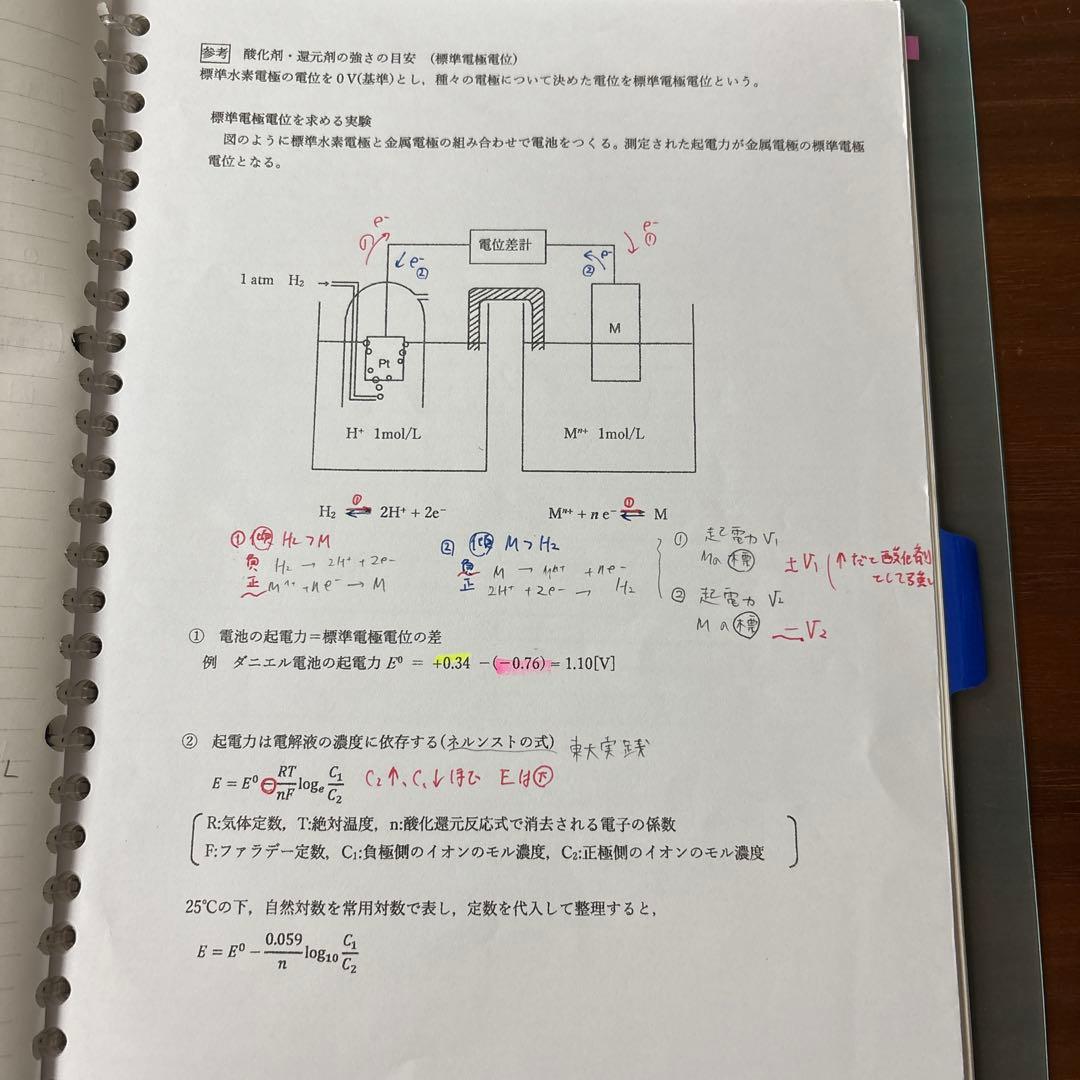 参考 酸化剤・還元剤の強さの目安 (標準電極電位)
標準水素電極の電位を0V(基準)とし，種々の電極について決めた電位を標準電極電位という。
標準電極電位を求める実験
図のように標準水素電極と金属電極の組み合わせで電池をつくる。測定された起電力が金属電極の標準電極
電位となる。
① e⁻
電位差計
e⁻ ①
e⁻ ②
② e⁻
1 atm H₂ →
Pt
M
H⁺ 1mol/L
Mⁿ⁺ 1mol/L
①
H₂ ⇌ 2H⁺ + 2e⁻
①
Mⁿ⁺ + n e⁻ ⇌ M
① H₂ > M
負 H₂ → 2H⁺ + 2e⁻
正 Mⁿ⁺ + ne⁻ → M
② M > H₂
負 M → Mⁿ⁺ + ne⁻
正 2H⁺ + 2e⁻ → H₂
① 起電力 V₁
Mの標 +V₁
↑だと酸化剤
として強い
② 起電力 V₂
Mの標 −V₂
① 電池の起電力＝標準電極電位の差
例 ダニエル電池の起電力 E⁰ = +0.34 −(−0.76) = 1.10[V]
② 起電力は電解液の濃度に依存する(ネルンストの式) 東大実践
E = E⁰ − RT/nF logₑ C₁/C₂ C₂↑、C₁↓ほど Eは大
R:気体定数，T:絶対温度，n:酸化還元反応式で消去される電子の係数
F:ファラデー定数，C₁:負極側のイオンのモル濃度，C₂:正極側のイオンのモル濃度
25℃の下，自然対数を常用対数で表し，定数を代入して整理すると，
E = E⁰ − 0.059/n log₁₀ C₁/C₂
L